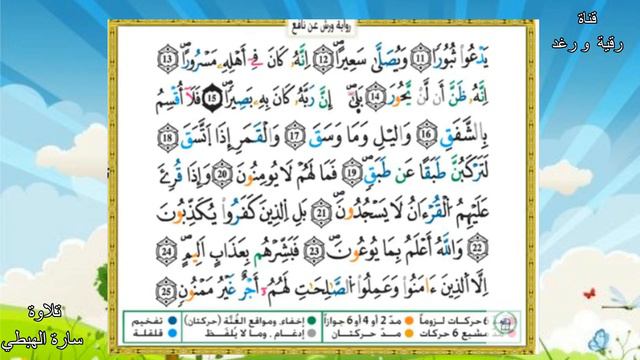 قناة
رقية و رغد
رواية ورش عن نافع
يَدْعُواْ ثُبُوراً 11 وَيُصَلَّىٰ سَعِيراً 12 اِنَّهُۥ كَانَ فِےٓ أَهْلِهِۦ مَسْرُوراً 13
اِنَّهُۥ ظَنَّ أَن لَّنْ يَّحُورَ 14 بَلَىٰٓ إِنَّ رَبَّهُۥ كَانَ بِهِۦ بَصِيراً 15 فَلَآ أُقْسِمُ
بِالشَّفَقِ 16 وَاليْلِ وَمَا وَسَقَ 17 وَالْقَمَرِ إِذَا اَتَّسَقَ 18
لَتَرْكَبُنَّ طَبَقاً عَن طَبَقٍ 19 فَمَا لَهُمْ لَا يُومِنُونَ 20 وَإِذَا قُرِۓَ
عَلَيْهِمُ اُلْقُرْءَانُ لَا يَسْجُدُونَ 21 بَلِ اِلذِينَ كَفَرُواْ يُكَذِّبُونَ
22 وَاللَّهُ أَعْلَمُ بِمَا يُوعُونَ 23 فَبَشِّرْهُم بِعَذَابٍ اَلِيمٍ 24
اِلَّا اَلذِينَ ءَامَنُواْ وَعَمِلُواْ اُلصَّٰلِحَٰتِ لَهُمُۥٓ أَجْرٌ غَيْرُ مَمْنُونٍ 25
6 حركات لزوماً مدّ 2 أو 4 أو 6 جوازاً إخفاء، ومواقع الغُنَّة (حركتان) تفخيم
مشبع 6 حركات مد حركتان إدغام، وما لا يُلفظ قلقلة
تلاوة
سارة الهبطي